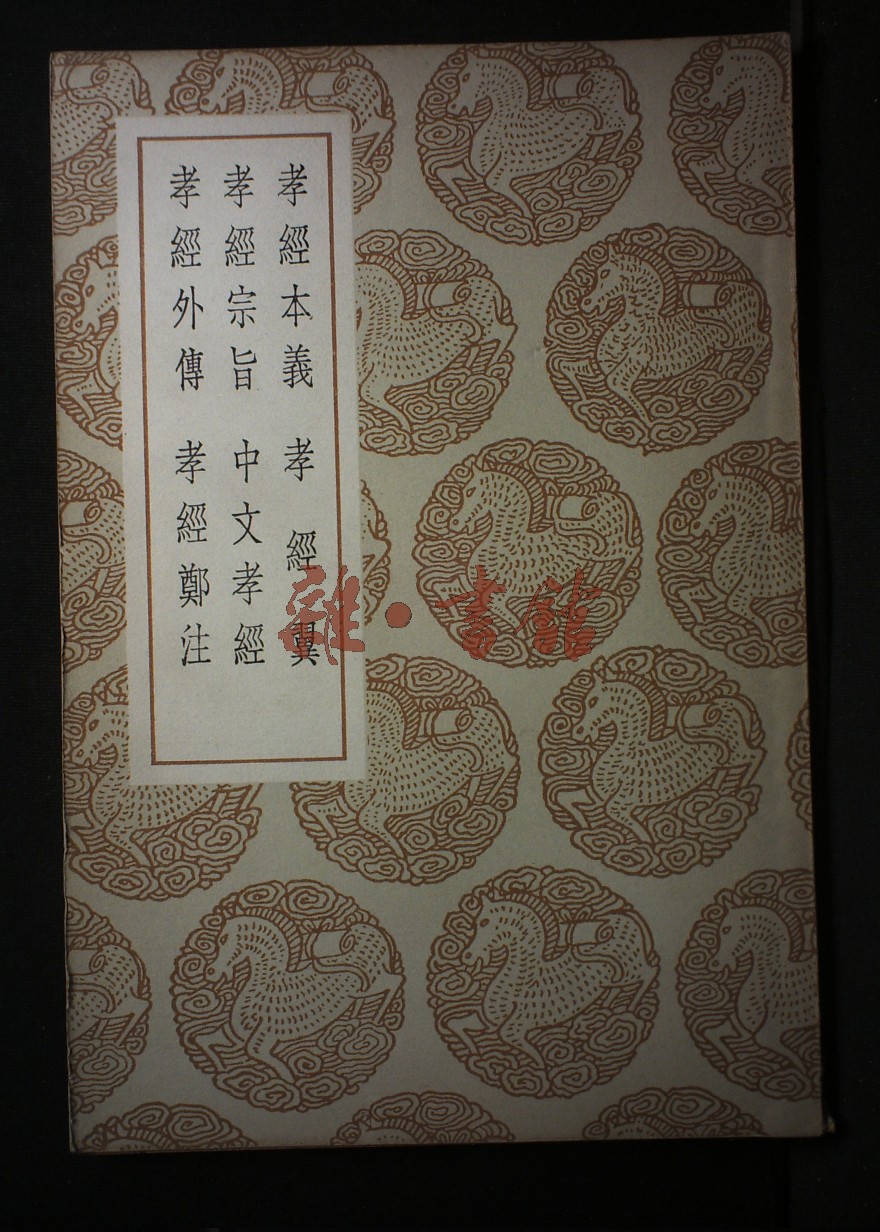 孝經本義 孝經翼
孝經宗旨 中文孝經
孝經外傳 孝經鄭注
雜·書館